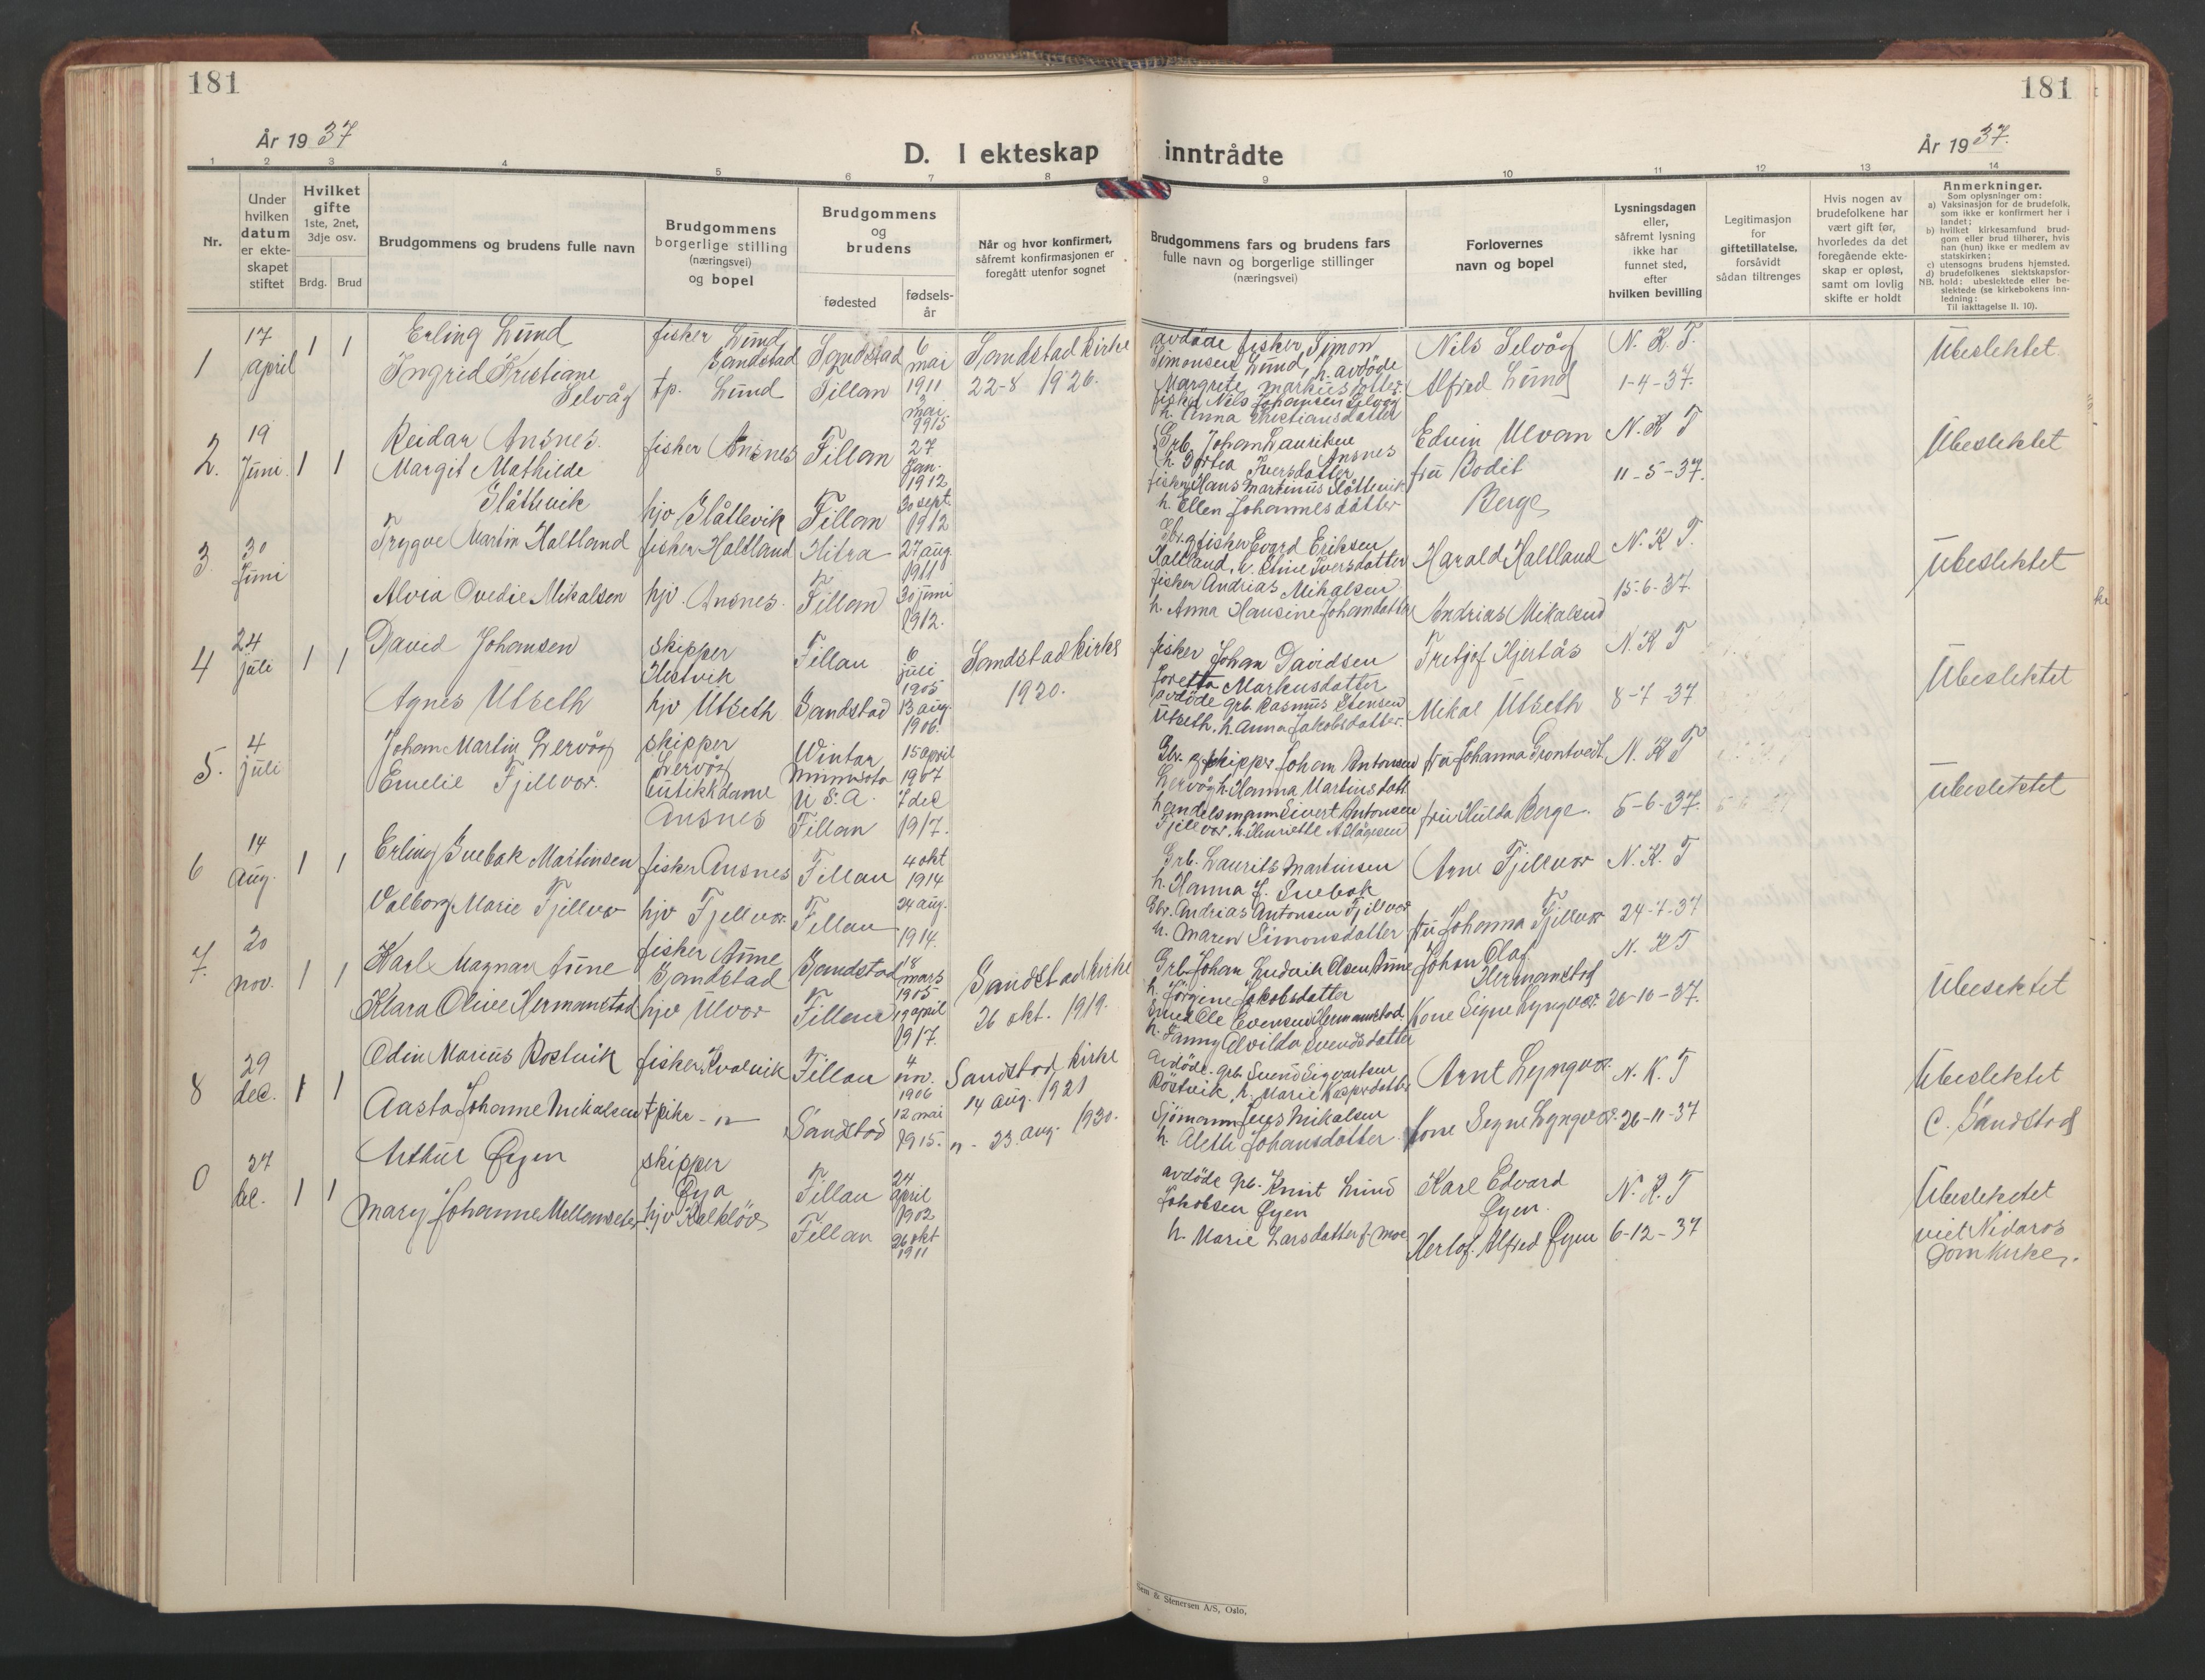 181
181
År 1937
D. I ekteskap inntrådte
År 1937.
1 2 3 4 5 6 7 8 9 10 11 12 13 14
Nr.
Under
hvilken
datum
er ekte-
skapet
stiftet
Hvilket
gifte
1ste, 2net,
3dje osv.
Brdg. Brud
Brudgommens og brudens fulle navn
Brudgommens
borgerlige stilling
(næringsvei)
og bopel
Brudgommens
og
brudens
fødested
fødsels-
år
Når og hvor konfirmert,
såfremt konfirmasjonen er
foregått utenfor sognet
Brudgommens fars og brudens fars
fulle navn og borgerlige stillinger
(næringsvei)
Forlovernes
navn og bopel
Lysningsdagen
eller,
såfremt lysning
ikke har
funnet sted,
efter
hvilken bevilling
Legitimasjon
for
giftetillatelse,
forsåvidt
sådan tiltrenges
Hvis nogen av
brudefolkene har
vært gift før,
hvorledes da det
foregående ekte-
skap er opløst,
samt om lovlig
skifte er holdt
Anmerkninger.
Som oplysninger om:
a) Vaksinasjon for de brudefolk,
som ikke er konfirmert her i
landet;
b) hvilket kirkesamfund brud-
gom eller brud tilhører, hvis
han (hun) ikke er medlem av
statskirken;
c) utensogns brudens hjemsted.
d) brudefolkenes slektskapsfor-
NB. hold: ubeslektede eller be-
slektede (se kirkebokens inn-
ledning:
Til iakttagelse II. 10).
1
17
april
1 1
Erling Lund
Ingrid Kristiane
Selvåg
fisker Lund
Sandstad
tp. Lund
Sandstad
Fillan
6
mai
1911
3
mai
1915
Sandstad kirke
22-8 1926.
avdöde fisker Simon
Simonsen Lund, h. avdöde
Margrete Markusdotter
fisker Nils Johansen Selvåg
h. Anna Kristiansdatter
Nils Selvåg
Alfred Lund
N. K. T.
1-4-37.
Ubeslektet
2.
19
Juni
1 1
Reidar Ansnes.
Margit Mathilde
Slåttevik
fisker Ansnes
hjv Slåttevik
Fillan
Fillan
27
Jan.
1912
30 sept.
1912
Grb. Johan Lauritsen
Ansnes
h. Dortea Iversdatter
fisker Hans Martinus Slåttevik
h. Ellen Johannesdatter
Edvin Ulvan
fru Bodil
Berge
N. K T
11-5-37.
Ubeslektet
3.
30
Juni
Trygve Martin Haltland
Alvia Ovedie Mikalsen
fisker Haltland
hjv. Ansnes.
Hitra
Fillan
27 aug.
1911
30 juni
1912.
Gbr. og fisker Evard Eriksen
Haltland, h. Stine Iversdatter
fisker Andrias Mikalsen
h. Anna Hansine Johandatter
Harald Haltland
Andrias Mikalsen
N. K T.
15-6-37.
Ubeslektet
4
24
juli
1 1
David Johansen
Agnes Utseth
skipper
Hestvik
hjv Utseth
Fillan
Sandstad
6
juli
1905
13 aug.
1906.
Sandstad kirke
1920.
fisker Johan Davidsen
Loretta Markusdatter
avdöde grb. Rasmus Stensen
Utseth, h. Anna Jakobsdatter.
Fritjof Hjertås
Mikal Utseth
N. K T
8-7-37
Ubeslektet
5.
4
juli
Johan Martin Lervåg
Emelie Fjellvær.
skipper
Lervåg
butikkdame
Ansnes
Wintar
Minnesota
U S. A.
Fillan
15 april
1907
7 dec
1917.
Gbr. og skipper Johan Antonsen
Lervåg h. Hanna Martinsdatt.
handelsmann Sivert Antonsen
Fjellvær, h. Henriette A. Hågesen
fru Johanna Grøntvedt
fru Hulda Berge.
N. K T
5-6-37.
Ubeslektet
6
14
aug.
1 1
Erling Snebak Martinsen
Valborg Marie Fjellvær
fisker Ansnes
hjv Fjellvær
Fillan
Fillan
4 okt
1914
24 aug.
1914.
Grb. Laurits Martinsen
h. Hanna f. Snebak
Gbr. Andrias Antonsen Fjellvær
h. Maren Simonsdatter
Arne Fjellvær
fru Johanna Fjellvær
N. K. T
24-7-37
7.
20
nov.
1 1
Karl Magnar Aune
Klara Olive Hermanstad
fisker Aune
Sandstad
hjv Ulvær
Sandstad
Fillan
18
mars
1905
19 april
1917.
Sandstad kirke
26 okt. 1919.
Grb. Johan Ludvik Olsen Aune
h. Jörgine Jakobsdatter
Smed Ole Evensen Hermanstad.
h. Fanny Alvilda Svendsdatter
Johan Olaf
Hermanstad
Kone Signe Lyngvær
N. K T
26-10-37.
Ubeslektet
8
29
dec.
1 1
Odin Marius Rostvik
Aasta Johanne Mikalsen
fisker Kvalvik
tpike - " -
Fillan
Sandstad
4
nov.
1906
12 mai
1915.
Sandstad kirke
14 aug. 1921
" - 23. aug. 1930.
Avdöde. grb. Svend Sigvartsen
Röstvik, h. Marie Kaspersdatter
Sjömann Jens Mikalsen
h. Alette Johansdatter.
Arnt Lyngvær
Kone Signe Lyngvær.
N. K. T
26-11-37
Ubeslektet
C. Sandstad
0
27
de.
1 1
Arthur Øyen
Mary Johanne Mellemseter
skipper
Øya
hjv Kalkløv
Fillan
Fillan
24
april
1902
26 okt
1911
avdöde Grb. Knut Lund
Jakobsen Øyen
h. Marie Larsdatter f. Moe
Karl Edvard
Øyen.
Herlof Alfred Øyen
N. K. T
6-12-37
Ubeslektet
viet Nidaros
Domkirke.
Sem & Stenersen A/S, Oslo.